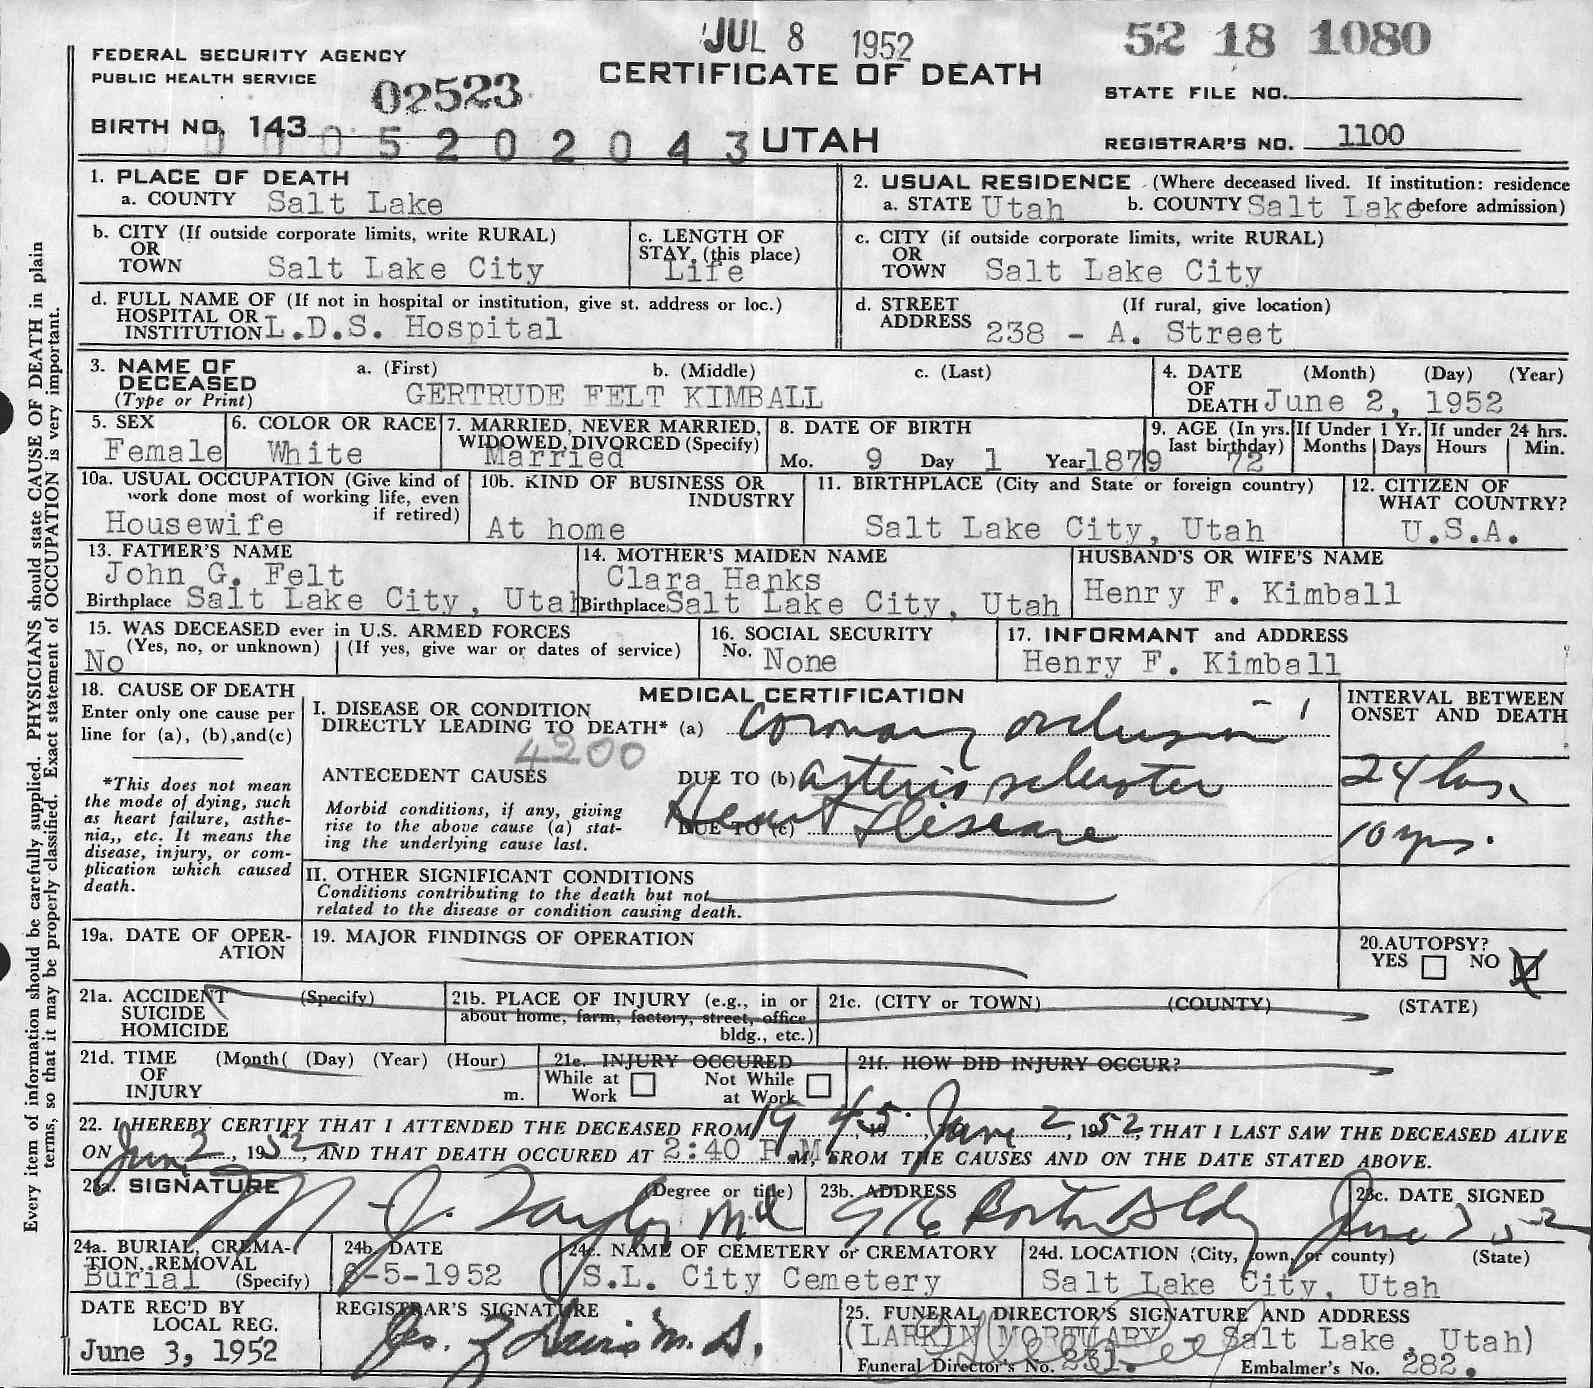 JUL 8 1952
52 18 1080
FEDERAL SECURITY AGENCY
PUBLIC HEALTH SERVICE
02523
CERTIFICATE OF DEATH
STATE FILE NO.
BIRTH NO. 143
0 0 0 5 2 0 2 0 4 3
UTAH
REGISTRAR'S NO. 1100
1. PLACE OF DEATH
a. COUNTY Salt Lake
2. USUAL RESIDENCE (Where deceased lived. If institution: residence
a. STATE Utah b. COUNTY Salt Lake before admission)
b. CITY (If outside corporate limits, write RURAL)
OR
TOWN Salt Lake City
c. LENGTH OF
STAY (this place)
Life
c. CITY (if outside corporate limits, write RURAL)
OR
TOWN Salt Lake City
d. FULL NAME OF (If not in hospital or institution, give st. address or loc.)
HOSPITAL OR
INSTITUTION L.D.S. Hospital
d. STREET (If rural, give location)
ADDRESS 238 - A. Street
3. NAME OF a. (First) b. (Middle) c. (Last)
DECEASED
(Type or Print) GERTRUDE FELT KIMBALL
4. DATE (Month) (Day) (Year)
OF
DEATH June 2, 1952
5. SEX
Female
6. COLOR OR RACE
White
7. MARRIED, NEVER MARRIED,
WIDOWED, DIVORCED (Specify)
Married
8. DATE OF BIRTH
Mo. 9 Day 1 Year 1879
9. AGE (In yrs.
last birthday)
72
If Under 1 Yr.
Months Days
If under 24 hrs.
Hours Min.
10a. USUAL OCCUPATION (Give kind of
work done most of working life, even
if retired)
Housewife
10b. KIND OF BUSINESS OR
INDUSTRY
At home
11. BIRTHPLACE (City and State or foreign country)
Salt Lake City, Utah
12. CITIZEN OF
WHAT COUNTRY?
U.S.A.
13. FATHER'S NAME
John G. Felt
Birthplace Salt Lake City, Utah
14. MOTHER'S MAIDEN NAME
Clara Hanks
Birthplace Salt Lake City, Utah
HUSBAND'S OR WIFE'S NAME
Henry F. Kimball
15. WAS DECEASED ever in U.S. ARMED FORCES
(Yes, no, or unknown) (If yes, give war or dates of service)
No
16. SOCIAL SECURITY
No. None
17. INFORMANT and ADDRESS
Henry F. Kimball
18. CAUSE OF DEATH
Enter only one cause per
line for (a), (b),and(c)
*This does not mean
the mode of dying, such
as heart failure, asthe-
nia,, etc. It means the
disease, injury, or com-
plication which caused
death.
MEDICAL CERTIFICATION
I. DISEASE OR CONDITION
DIRECTLY LEADING TO DEATH* (a) Coronary occlusion
4200
ANTECEDENT CAUSES DUE TO (b) arterio sclerotic
Morbid conditions, if any, giving
rise to the above cause (a) stat-
ing the underlying cause last.
DUE TO (c) Heart Disease
INTERVAL BETWEEN
ONSET AND DEATH
24 hrs.
10 yrs.
II. OTHER SIGNIFICANT CONDITIONS
Conditions contributing to the death but not
related to the disease or condition causing death.
19a. DATE OF OPER-
ATION
19. MAJOR FINDINGS OF OPERATION
20.AUTOPSY?
YES NO X
21a. ACCIDENT (Specify)
SUICIDE
HOMICIDE
21b. PLACE OF INJURY (e.g., in or
about home, farm, factory, street, office
bldg., etc.)
21c. (CITY or TOWN) (COUNTY) (STATE)
21d. TIME (Month( (Day) (Year) (Hour)
OF
INJURY m.
21e. INJURY OCCURED
While at Work Not While at Work
21f. HOW DID INJURY OCCUR?
22. I HEREBY CERTIFY THAT I ATTENDED THE DECEASED FROM 1945, 19 June 2, 1952, THAT I LAST SAW THE DECEASED ALIVE
ON June 2, 1952, AND THAT DEATH OCCURED AT 2:40 P.M., FROM THE CAUSES AND ON THE DATE STATED ABOVE.
23a. SIGNATURE (Degree or title)
J. Taylor MD
23b. ADDRESS
Boston Bldg
23c. DATE SIGNED
June 2 52
24a. BURIAL, CREMA-
TION, REMOVAL
Burial (Specify)
24b. DATE
6-5-1952
24c. NAME OF CEMETERY or CREMATORY
S.L. City Cemetery
24d. LOCATION (City, town, or county) (State)
Salt Lake City, Utah
DATE REC'D BY
LOCAL REG.
June 3, 1952
REGISTRAR'S SIGNATURE
M.D.
25. FUNERAL DIRECTOR'S SIGNATURE AND ADDRESS
(LARKIN MORTUARY Salt Lake, Utah)
Funeral Director's No. 231. Embalmer's No. 282.
Every item of information should be carefully supplied. PHYSICIANS should state CAUSE OF DEATH in plain
terms, so that it may be properly classified. Exact statement of OCCUPATION is very important.